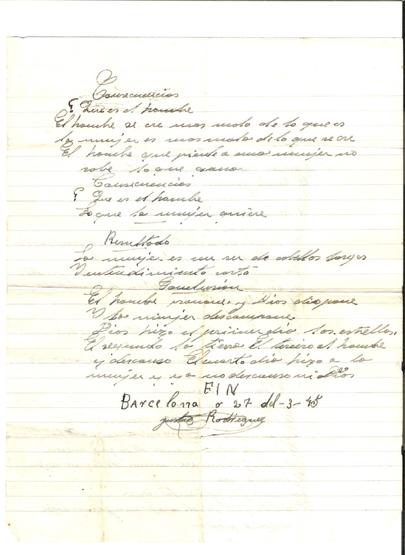 Consecuencias
Que es el hombre
El hombre se cre mas malo de lo que es
La mujer es mas mala de lo que se cre
El hombre que pierde a una mujer no
sabe lo que gana
Consecuencias
Que es el hombre
Lo que la mujer quiere
Resultado
La mujer es un ser de cabellos largos
Y entendimiento corto
Conclusion
El hombre propone y Dios dispone
Y la mujer descompone
Dios hizo el primer dia las estrellas
El segundo la tierra El tercero el hombre
y descanso El cuarto dia hizo a la
mujer y ya no descanso ni Dios
FIN
Barcelona a 27 del-3-45
Rodriguez